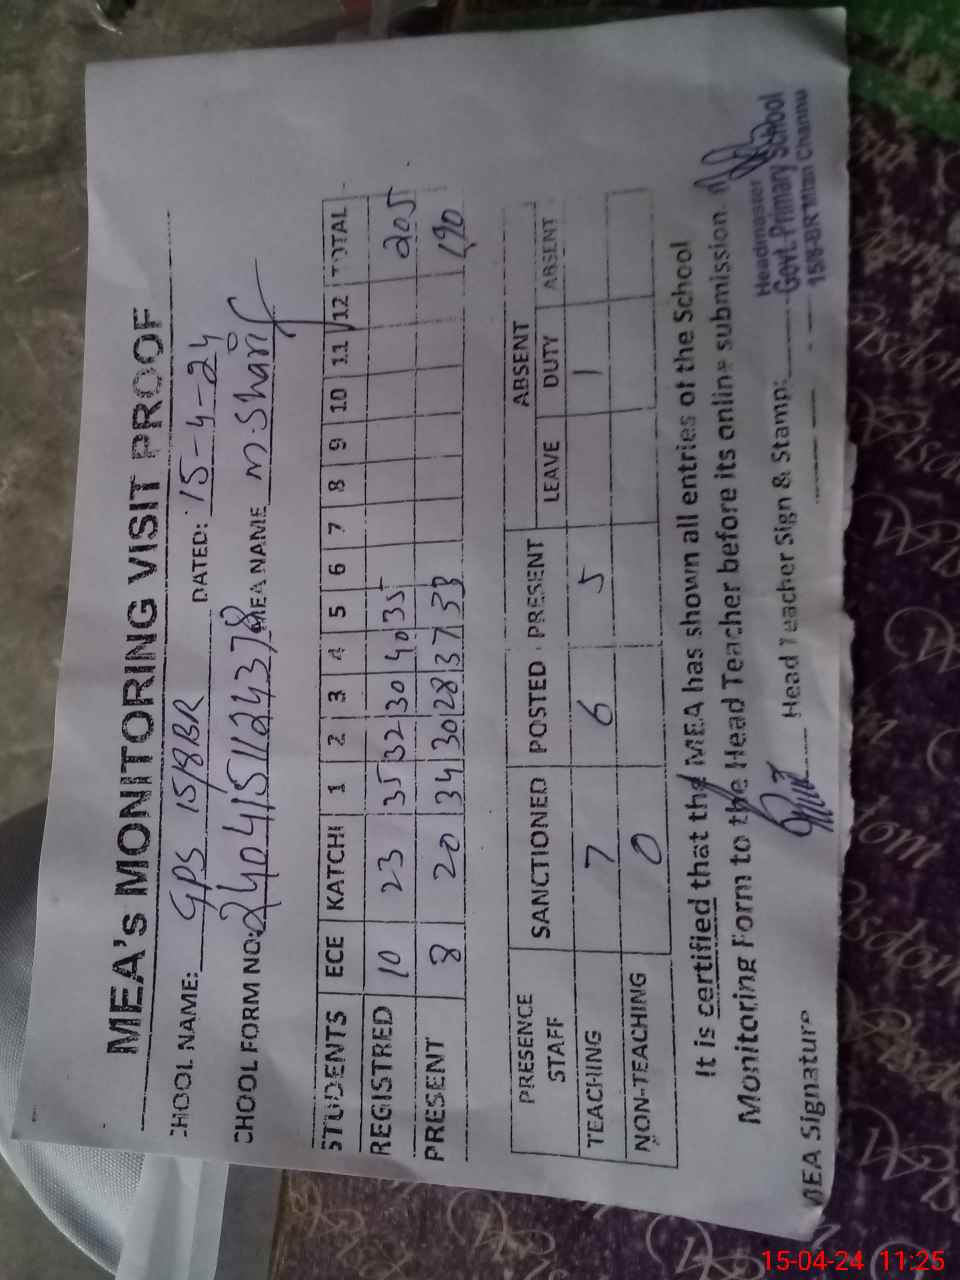 MEA's MONITORING VISIT PROOF
CHOOL NAME: GPS 15/8BR DATED: 15-4-24
CHOOL FORM NO: MEA NAME M Sharif
STUDENTS ECE KATCHI 1 2 3 4 5 6 7 8 9 10 11 12 TOTAL
REGISTRED 10 23 35 32 30 40 35 205
PRESENT 8 20 34 30 28 37 33 190
PRESENCE STAFF SANCTIONED POSTED PRESENT ABSENT
LEAVE DUTY ABSENT
TEACHING 7 6 5 1
NON-TEACHING 0
It is certified that the MEA has shown all entries of the School
Monitoring Form to the Head Teacher before its online submission.
MEA Signature Head Teacher Sign & Stamp:
Headmaster
Govt. Primary School
15/8-BR Mian Channu
15-04-24 11:25